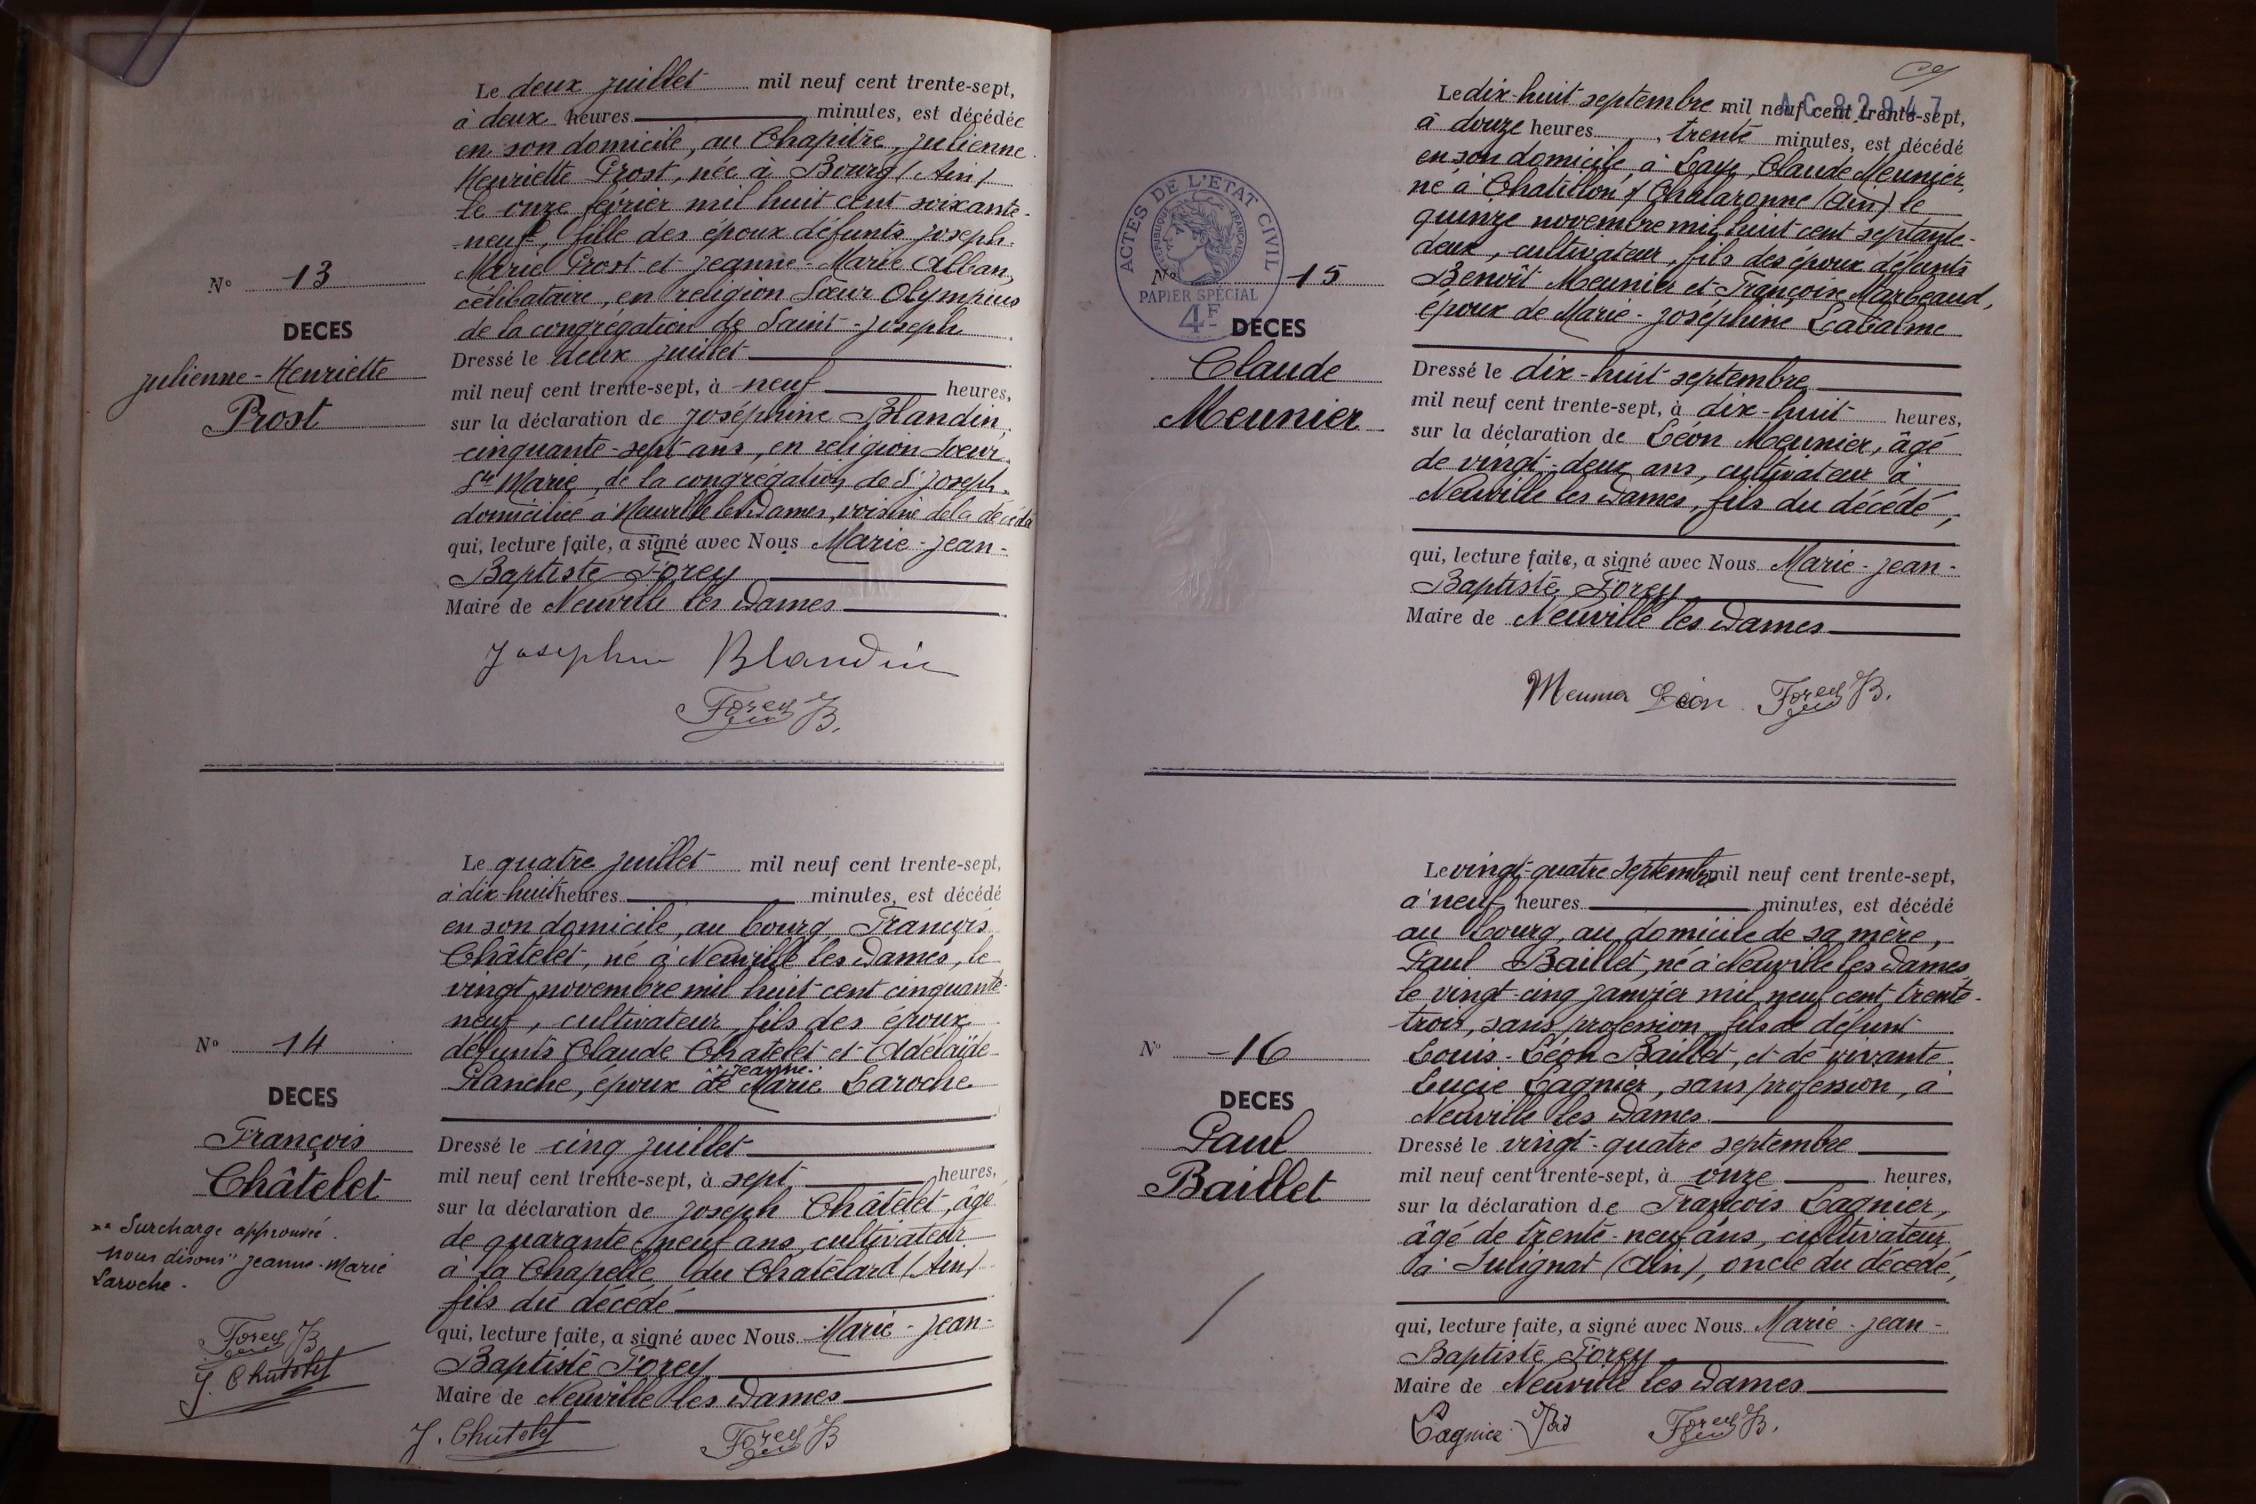 Le deux juillet mil neuf cent trente-sept,
à deux heures minutes, est décédée
en son domicile, au Chapitre, Julienne
Henriette Prost, née à Bourg (Ain)
le onze février mil huit cent soixante-
neuf, fille des époux défunts Joseph-
Marie Prost et Jeanne-Marie Alban,
célibataire, en religion Sœur Olympius
de la congrégation de Saint-Joseph
N° 13
DECES
Julienne-Henriette
Prost
Dressé le deux juillet
mil neuf cent trente-sept, à neuf heures,
sur la déclaration de Joséphine Blandin,
cinquante-sept ans, en religion Sœur
Ste Marie, de la congrégation de St Joseph,
domiciliée à Neuville les Dames, voisine de la décédée
qui, lecture faite, a signé avec Nous Marie-Jean-
Baptiste Forey
Maire de Neuville les Dames
Josephine Blandin
Forey JB.
Le quatre juillet mil neuf cent trente-sept,
à dix-huit heures minutes, est décédé
en son domicile, au bourg, François
Châtelet, né à Neuville les Dames, le
vingt novembre mil huit cent cinquante-
neuf, cultivateur, fils des époux
défunts Claude Chatelet et Adélaïde
Planche, époux de "Jeanne" Marie Laroche
N° 14
DECES
François
Châtelet
"" Surcharge approuvée.
nous disons "Jeanne-Marie
Laroche.
Forey JB
J. Chatelet
Dressé le cinq juillet
mil neuf cent trente-sept, à sept heures,
sur la déclaration de Joseph Châtelet, âgé
de quarante-neuf ans, cultivateur
à la Chapelle du Chatelard (Ain)
fils du décédé
qui, lecture faite, a signé avec Nous Marie-Jean-
Baptiste Forey
Maire de Neuville les Dames
J. Chatelet Forey JB
AC 82947
Le dix-huit septembre mil neuf cent trente-sept,
à douze heures, trente minutes, est décédé
en son domicile, à Laye, Claude Meunier,
né à Chatillon s/ Chalaronne (Ain) le
quinze novembre mil huit cent septante-
deux, cultivateur, fils des époux défunts
Benoît Meunier et Françoise Marbeaud,
époux de Marie-Joséphine Labalme
ACTES DE L'ETAT CIVIL
REPUBLIQUE FRANÇAISE
PAPIER SPÉCIAL
4F
N° 15
DECES
Claude
Meunier
Dressé le dix-huit septembre
mil neuf cent trente-sept, à dix-huit heures,
sur la déclaration de Léon Meunier, âgé
de vingt-deux ans, cultivateur à
Neuville les Dames, fils du décédé,
qui, lecture faite, a signé avec Nous Marie-Jean-
Baptiste Forey
Maire de Neuville les Dames
Meunier Léon Forey JB.
Le vingt-quatre Septembre mil neuf cent trente-sept,
à neuf heures minutes, est décédé
au bourg, au domicile de sa mère,
Paul Baillet, né à Neuville les Dames
le vingt-cinq janvier mil neuf cent trente-
trois, sans profession, fils de défunt
Louis-Léon Baillet, et de vivante
Lucie Cagnier, sans profession, à
Neuville les Dames
N° 16
DECES
Paul
Baillet
Dressé le vingt-quatre septembre
mil neuf cent trente-sept, à onze heures,
sur la déclaration de François Cagnier,
âgé de trente-neuf ans, cultivateur
à Sulignat (Ain), oncle du décédé,
qui, lecture faite, a signé avec Nous Marie-Jean-
Baptiste Forey
Maire de Neuville les Dames
Forey JB.